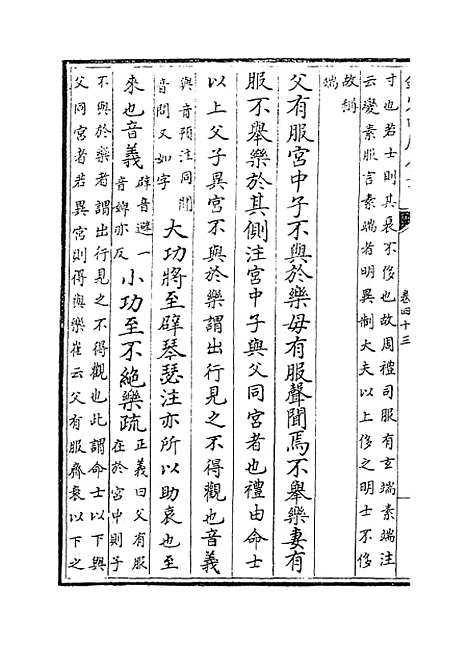 卷四十三
寸也若士則其衰不侈也故周禮司服有玄端素端注
云變素服言素端者明異制大夫以上侈之明士不侈
故稱
端
父有服宮中子不與於樂母有服聲聞焉不舉樂妻有
服不舉樂於其側注宮中子與父同宮者也禮由命士
以上父子異宮不與於樂謂出行見之不得觀也音義
與音預注同聞
音問又如字
大功將至辟琴瑟注亦所以助哀也至
來也音義
辟音避一
音婢亦反
小功至不絕樂疏
正義曰父有服
在於宮中則子
不與於樂者謂出行見之不得觀也此謂命士以下與
父同宮者若異宮則得與樂崔云父有服齊衰以下之